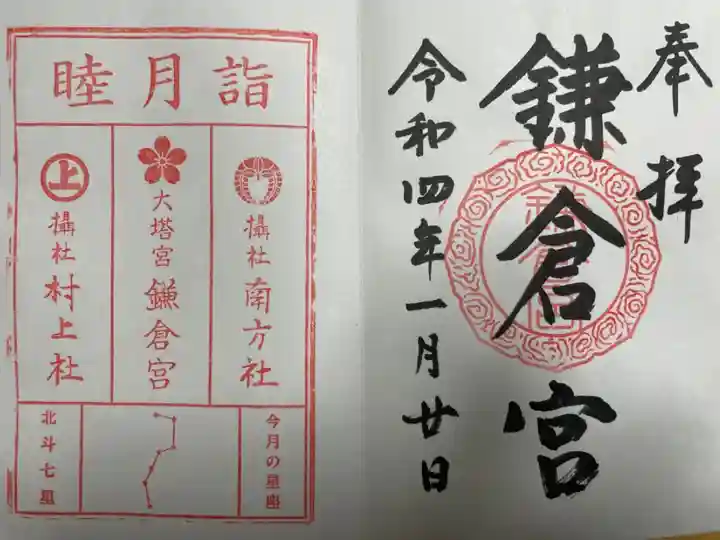 奉拝
鎌倉宮
令和四年一月廿日
睦月詣
攝社 南方社
大塔宮 鎌倉宮
上 攝社 村上社
今月の星座
北斗七星